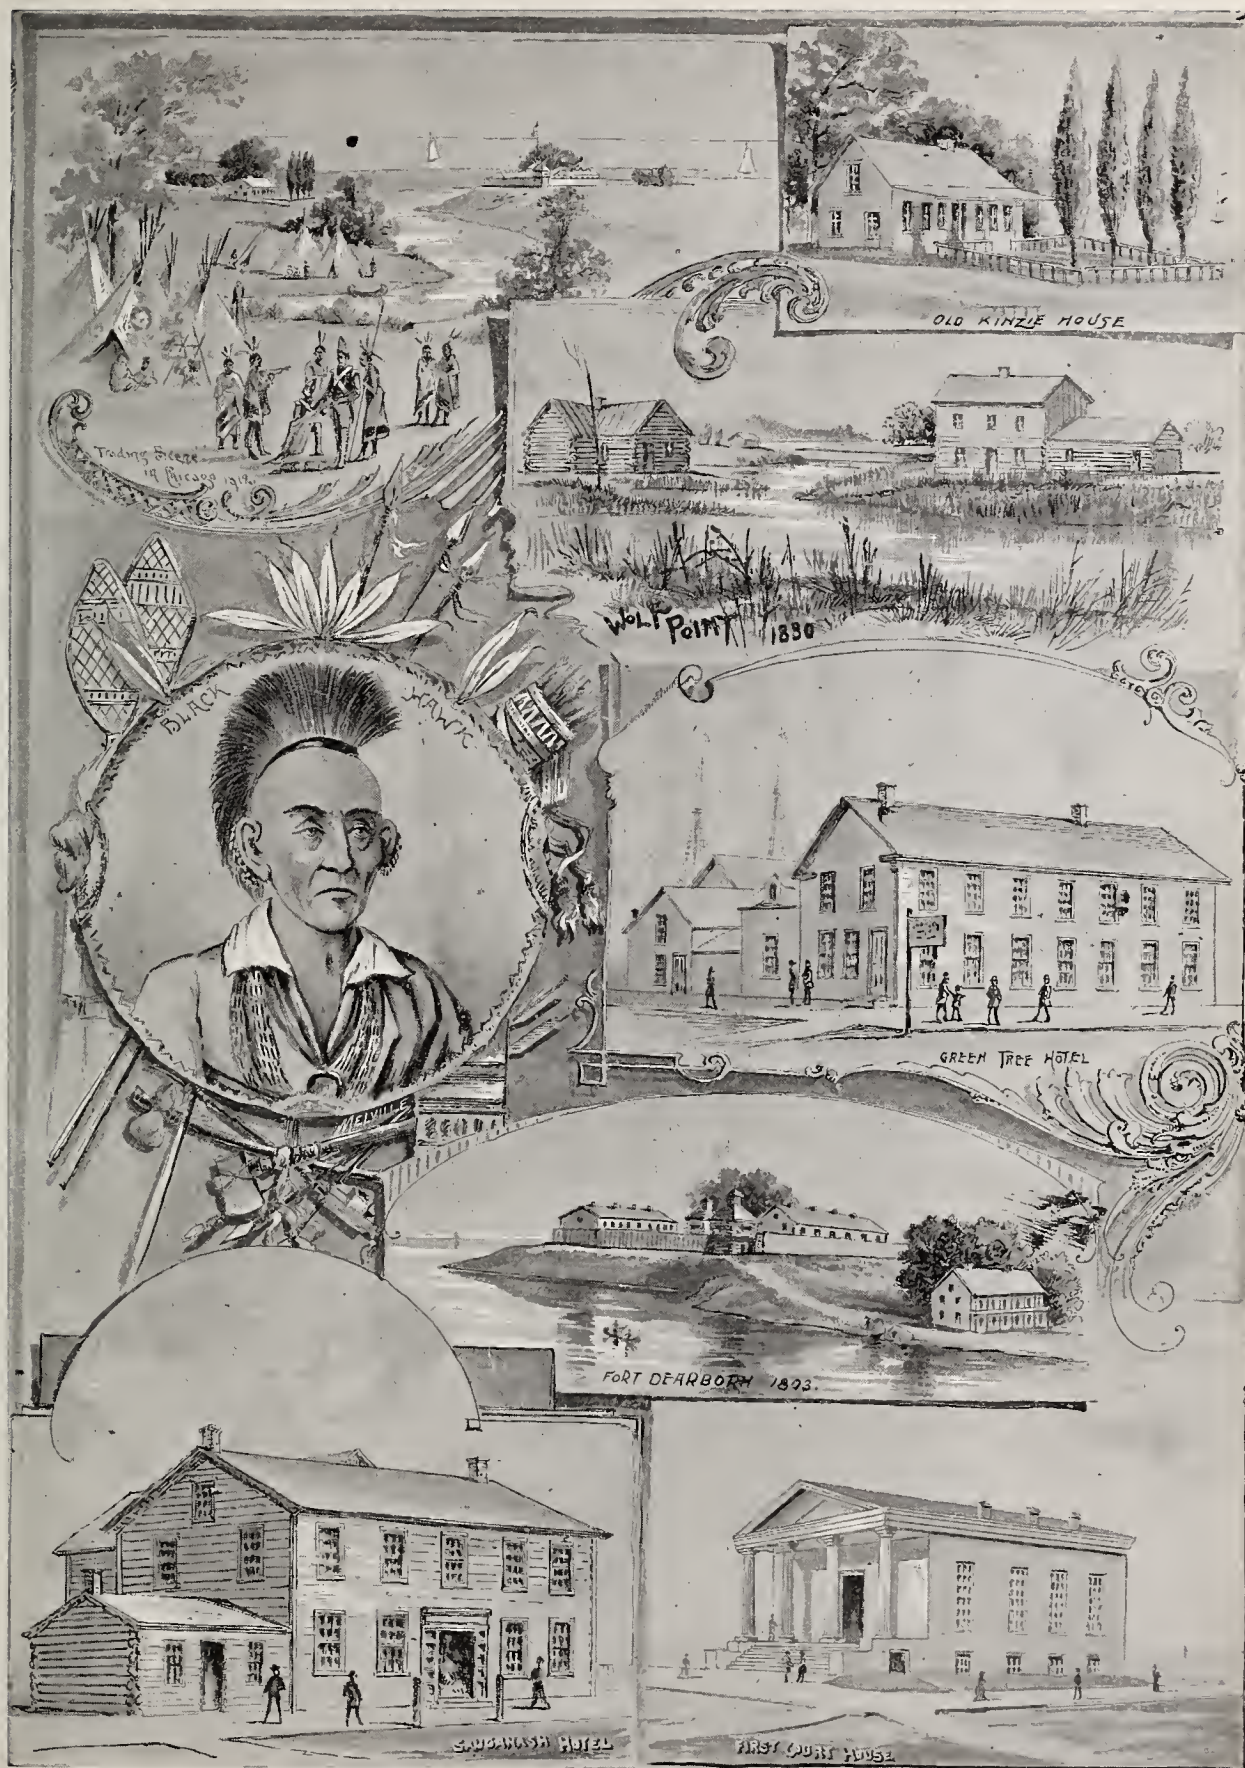 OLD KINZIE HOUSE
Trading Scene
in Chicago
WOLF POINT 1830
BLACK HAWK
MELVILLE
GREEN TREE HOTEL
FORT DEARBORN 1803.
SAUGANASH HOTEL
FIRST COURT HOUSE